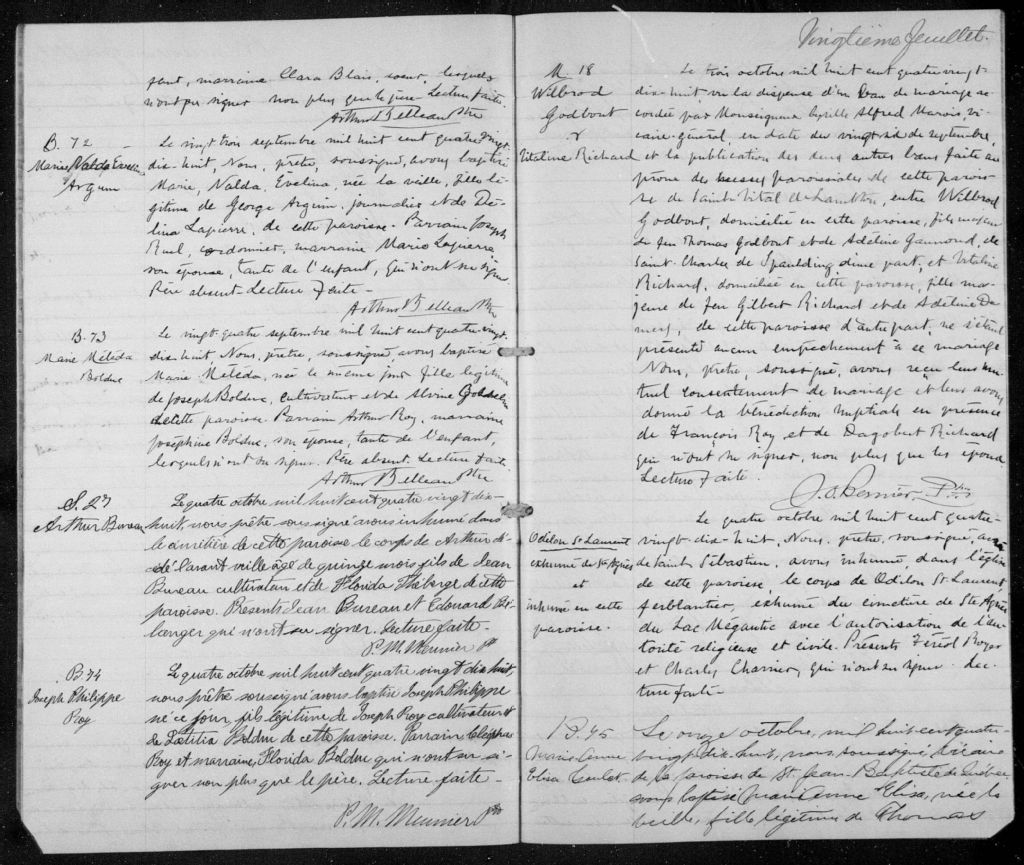 sent, marraine Clara Blais, sœur, lesquels
n'ont pu signer non plus que le père. Lecture faite.
Arthur Belleau Ptre
B. 72
Marie Valda Evelina
Arguin
Le vingt trois septembre mil huit cent quatre vingt
dix-huit, Nous, prêtre, soussigné, avons baptisé
Marie, Valda, Evelina, née la veille, fille lé-
gitime de George Arguin, journalier et de De-
lina Lapierre, de cette paroisse. Parrain Joseph
Ruel, cordonnier, marraine Marie Lapierre
son épouse, tante de l'enfant, qui n'ont su signer
Père absent - Lecture faite -
Arthur Belleau Ptre
B. 73
Marie Méléda
Bolduc
Le vingt quatre septembre mil huit cent quatre-vingt
dix-huit Nous, prêtre, soussigné, avons baptisé
Marie Méléda, née le même jour fille légitime
de Joseph Bolduc, cultivateur et de Alvina
de cette paroisse. Parrain Arthur Roy, marraine
Joséphine Bolduc, son épouse, tante de l'enfant,
lesquels n'ont su signer. Père absent. Lecture faite.
Arthur Belleau Ptre
S. 27
Arthur Bureau
Le quatre octobre mil huit cent quatre vingt dix-
huit, nous prêtre soussigné avons inhumé dans
le cimetière de cette paroisse le corps de Arthur dé-
cédé l'avant veille âgé de quinze mois fils de Jean
Bureau cultivateur et de Florida Théberge de cette
paroisse. Présents Jean Bureau et Edouard Bé-
langer qui n'ont su signer. Lecture faite -
P. M. Meunier Pt
B. 74
Joseph Philippe
Roy
Le quatre octobre mil huit cent quatre vingt dix huit,
nous prêtre soussigné avons baptisé Joseph Philippe
né ce jour, fils légitime de Joseph Roy cultivateur et
de Lætitia Bolduc de cette paroisse. Parrain Cléophas
Roy et marraine, Florida Bolduc qui n'ont su si-
gner non plus que le père. Lecture faite -
P. M. Meunier Ptre
Vingtième feuillet.
M. 18
Wilbrod
Godbout
&
Vitaline Richard
Le trois octobre mil huit cent quatre vingt-
dix-huit vu la dispense d'un ban de mariage ac-
cordée par Monseigneur Cyrille Alfred Marois, vi-
caire-général, en date du vingt six de septembre,
et la publication des deux autres bans faite au
prône des messes paroissiales de cette parois-
se de Saint-Vital de Lambton, entre Wilbrod
Godbout, domicilié en cette paroisse, fils majeur
de feu Thomas Godbout et de Adéline Gaumond, de
Saint-Charles de Spaulding, d'une part, et Vitaline
Richard, domiciliée en cette paroisse, fille ma-
jeure de feu Gilbert Richard et de Adeline De-
mers, de cette paroisse d'autre part, ne s'étant
présenté aucun empêchement à ce mariage
Nous, prêtre, soussigné, avons reçu leur mu-
tuel consentement de mariage et leur avons
donné la bénédiction nuptiale en présence
de François Roy et de Dagobert Richard
qui n'ont su signer, non plus que les époux
Lecture faite.
J. O. Bernier, Ptre
Odilon St Laurent
exhumé de Ste Agnès
et
inhumé en cette
paroisse.
Le quatre octobre mil huit cent quatre-
vingt-dix-huit, Nous, prêtre, soussigné, curé
de Saint Sébastien, avons inhumé, dans l'église
de cette paroisse, le corps de Odilon St Laurent,
ferblantier, exhumé du cimetière de Ste Agnès
du Lac Mégantic avec l'autorisation de l'au-
torité religieuse et civile. Présents Féréol Boyer
et Charles Charrier, qui n'ont su signer. Lec-
ture faite -
B. 75
Marie Anne
Elisa Goulet
Le onze octobre, mil huit cent quatre-
vingt-dix-huit, nous soussigné vicaire
de la paroisse de St. Jean-Baptiste de Québec
avons baptisé Marie Anne Elisa, née la
veille, fille légitime de Thomas